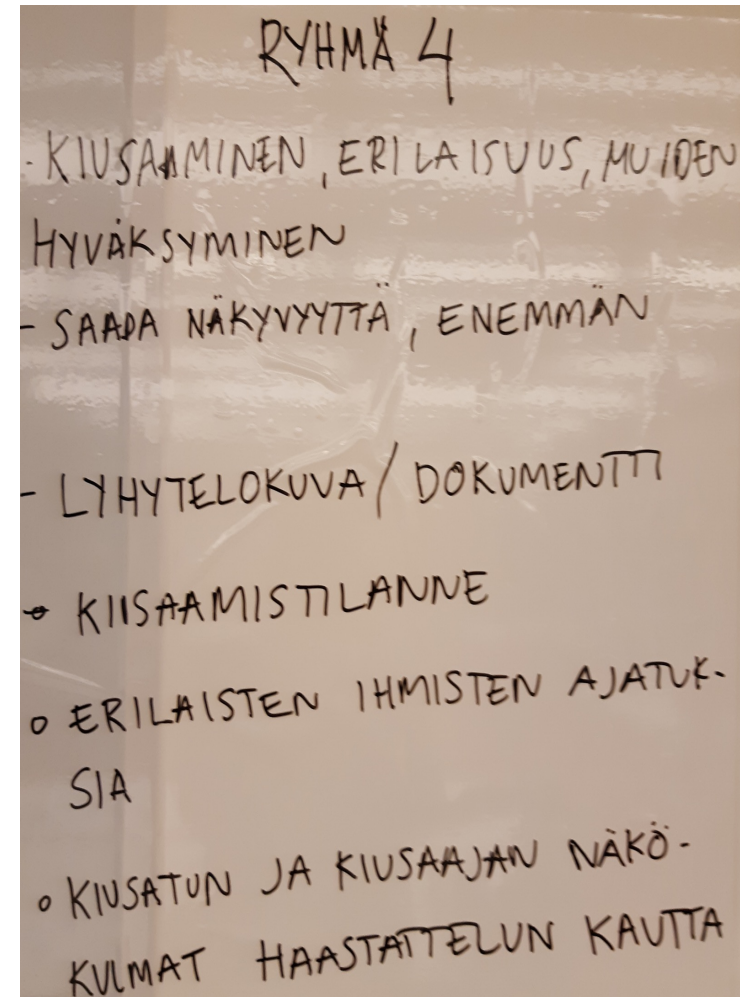 RYHMÄ 4
- KIUSAAMINEN, ERILAISUUS, MUIDEN
HYVÄKSYMINEN
- SAADA NÄKYVYYTTÄ, ENEMMÄN
- LYHYTELOKUVA/DOKUMENTTI
• KIISAAMISTILANNE
o ERILAISTEN IHMISTEN AJATUK-
SIA
o KIUSATUN JA KIUSAAJAN NÄKÖ-
KULMAT HAASTATTELUN KAUTTA